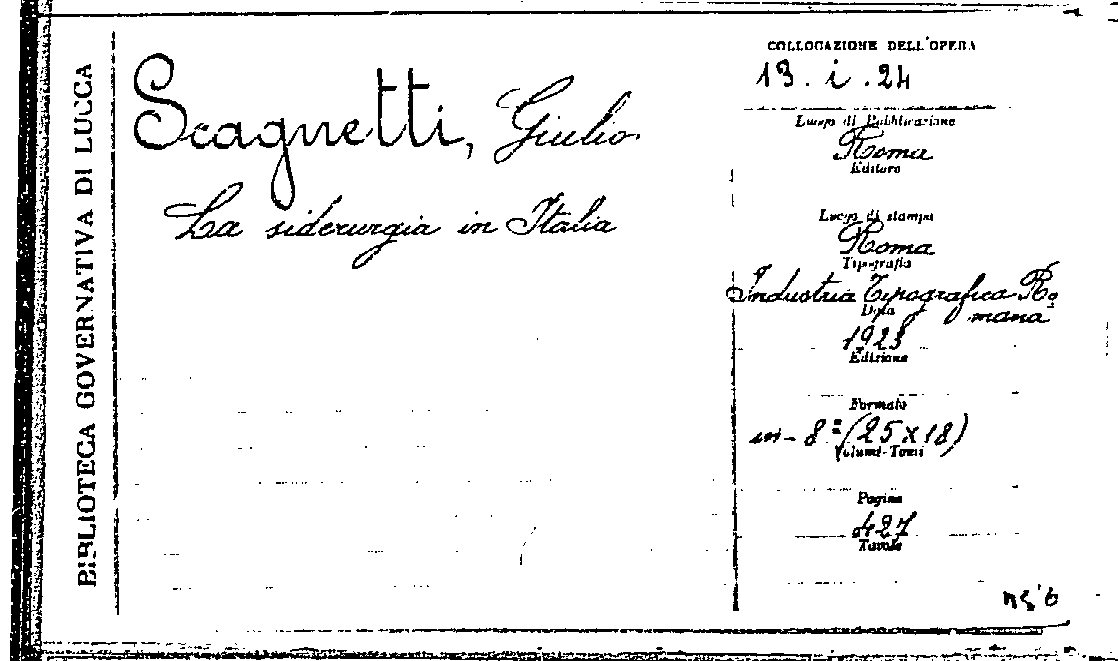 BIBLIOTECA GOVERNATIVA DI LUCCA
Scagnetti, Giulio
La siderurgia in Italia
COLLOCAZIONE DELL'OPERA
13. i. 24
Luogo di Pubblicazione
Roma
Editore
Luogo di stampa
Roma
Tipografia
Industria Tipografica Ro
mana
Data
1923
Edizione
Formato
in-8º (25x18)
Volumi-Tomi
Pagine
427
Tavole